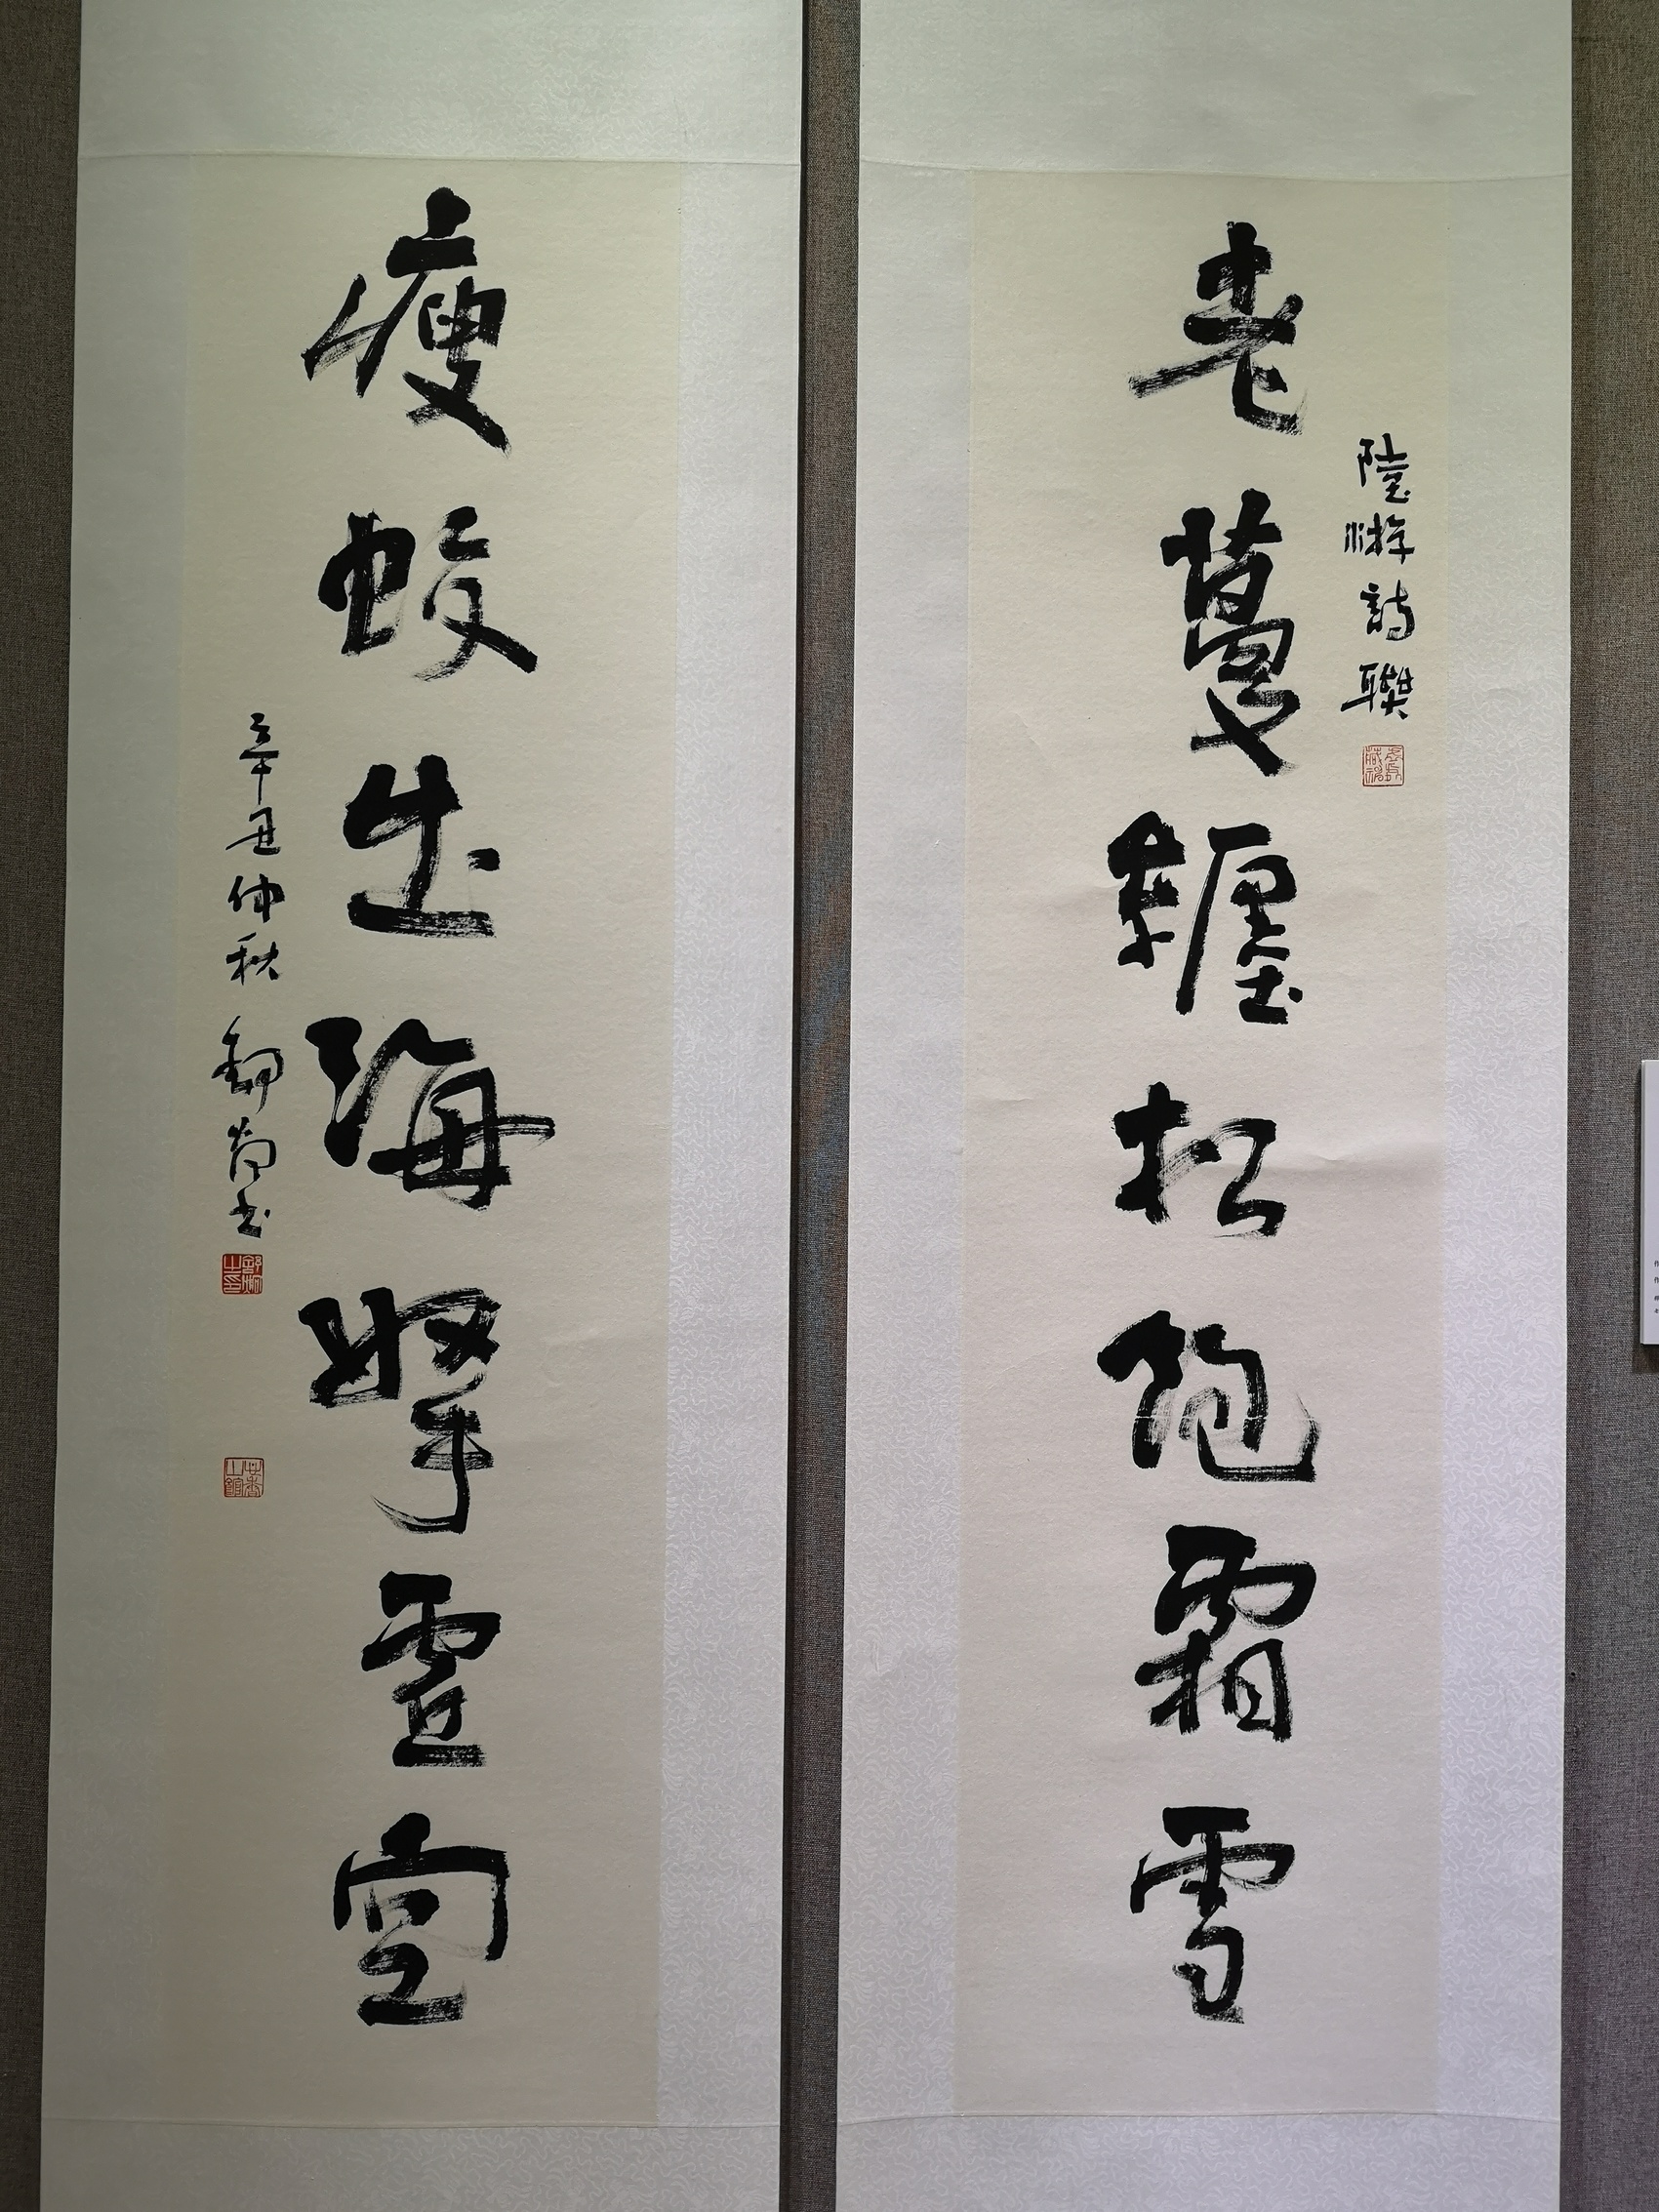 老蔓纏松飽霜雪
陸游詩聯
瘦蛟出海挐虛空
辛丑仲秋
書